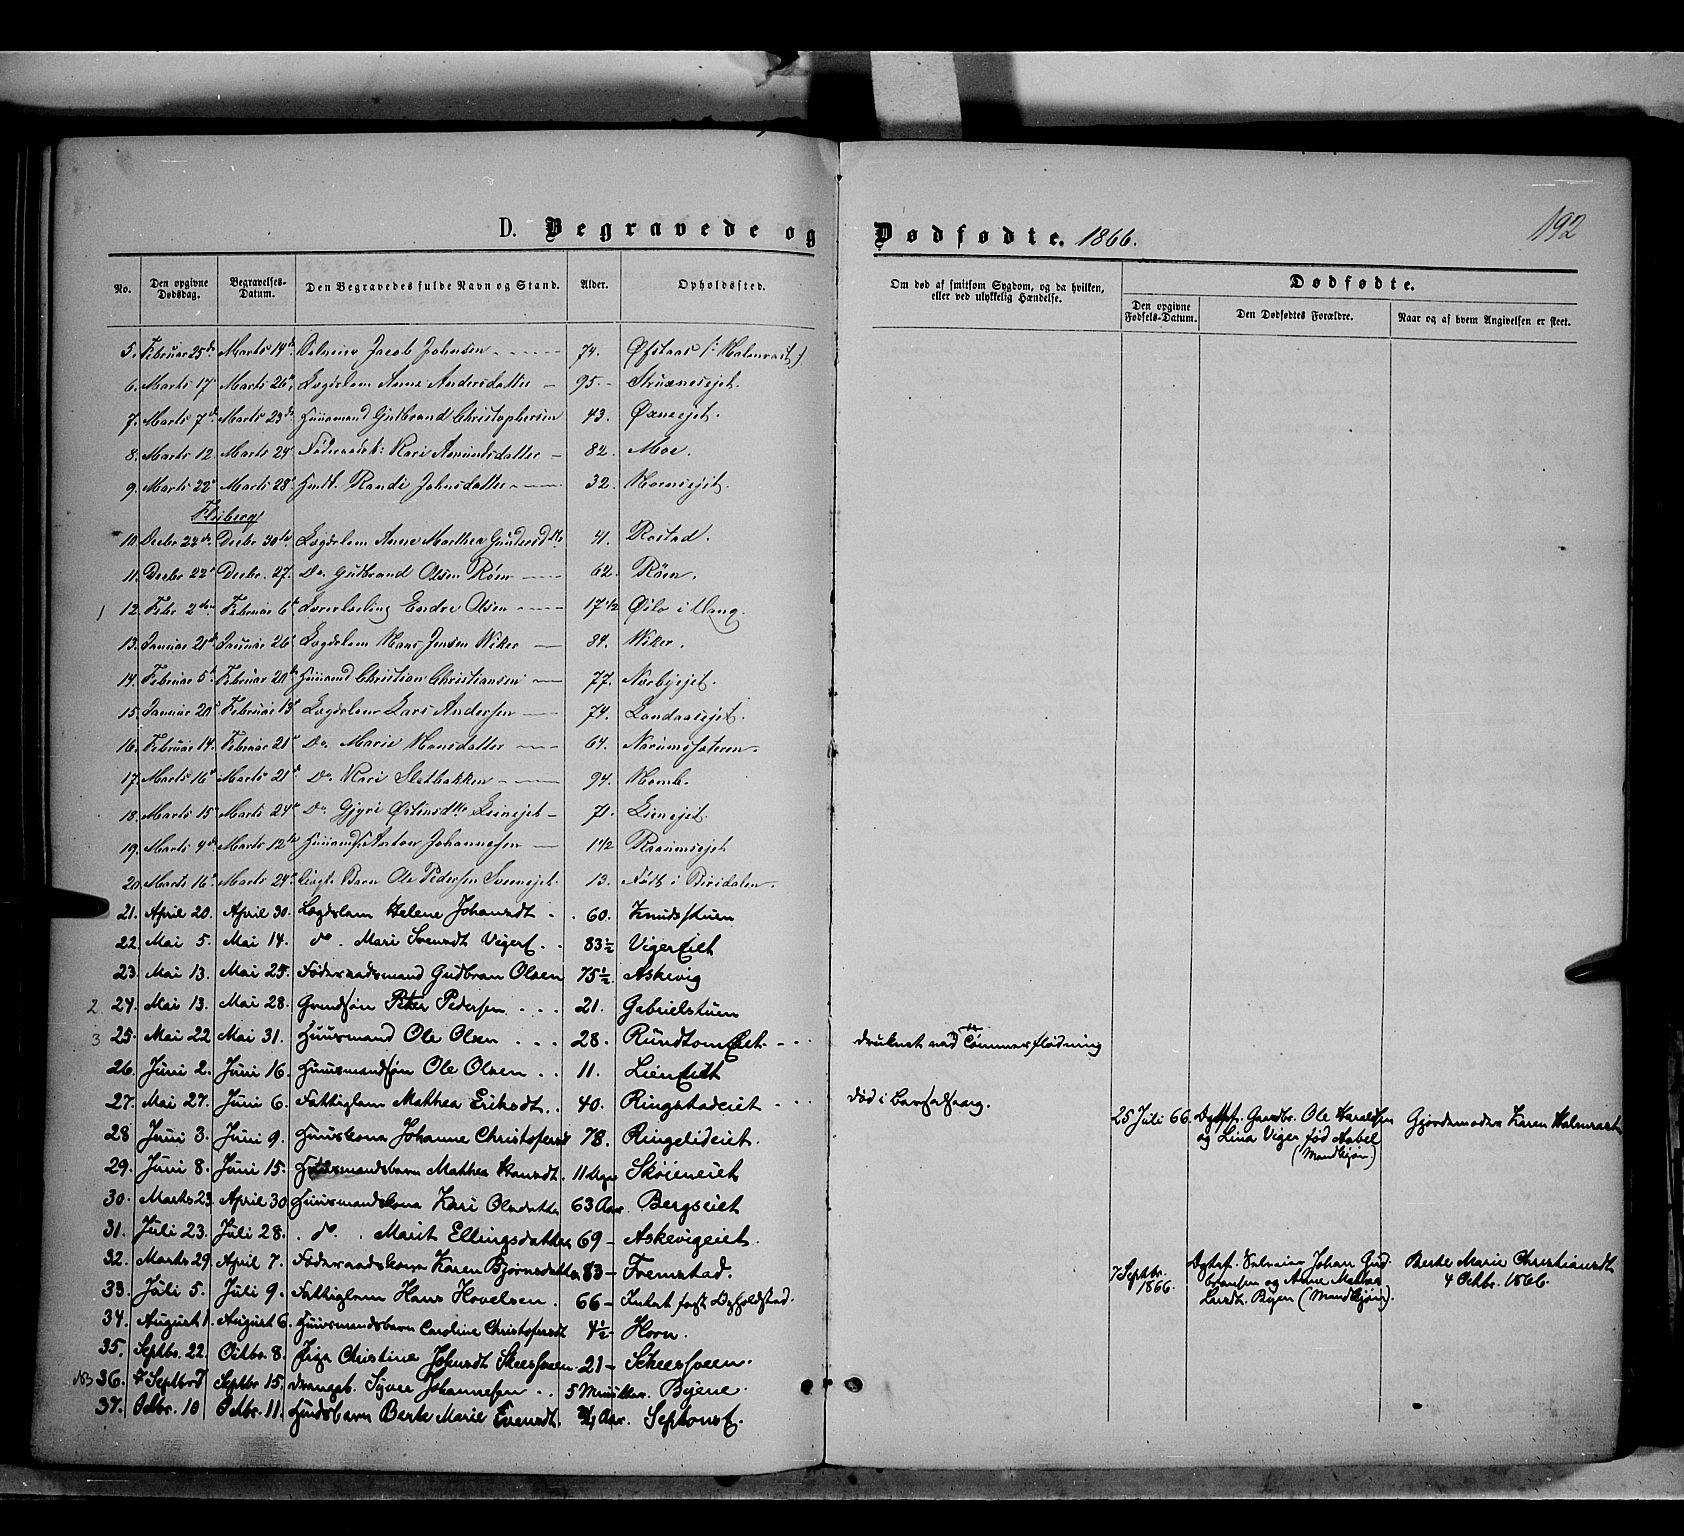 D. Begravede og Dødfødte. 1866.
192
No. Den opgivne Dødsdag. Begravelses-Datum. Den Begravedes fulde Navn og Stand. Alder. Opholdssted. Om død af smitsom Sygdom, og da hvilken, eller ved ulykkelig Hændelse. Dødfødte.
Den opgivne Fødsels-Datum. Den Dødfødtes Forældre. Naar og af hvem Angivelsen er skeet.
5. Februar 25de Marts 14de Jacob Johnsen 74. Øfstaas (: Halmrast :)
6. Marts 17 Marts 26 Lægdslem Anne Andersdatter 95. Struxnesejet.
7. Marts 7de Marts 23de Huusmand Gutbrand Christophersen 43. Øxneejet.
8. Marts 12 Marts 24 Føderaadsk: Kari Amundsdatter 82. Moe.
9. Marts 22 Marts 28 Randi Johnsdatter 32. Hornsejet.
Fluberg
10. Decbr 22de Decbr 30te Lægdslem Anne Marthea Gundersdtr 41. Rostad.
11. Decbr 22 Decbr. 27. Do. Gutbrand Olsen Røen 62. Røen.
1 12. Febr 2den Februar 6te Endre Olsen 17 1/2 Øilo i Vang.
13. Januar 21de Januar 26 Lægdslem Hans Jensen Wiker 84. Wiker.
14. Februar 5te Februar 20de Huusmd Christian Christiansen 77. Norbyejet.
15. Januar 20 Februar 13 Lægdslem Lars Andersen 74. Landaasejet.
16. Februar 14. Februar 21 Do. Marie Hansdatter 64. Narumsæteren.
17. Marts 16 Marts 21de Do. Kari Sletbakken 94. Homb.
18. Marts 15 Marts 24 Do. Gjyri Østensdtr Lienejet 71. Lienejet.
19. Marts 4de Marts 12te Anton Johannesen 1 1/2 Raaumsejet
20. Marts 16 Marts 24 Barn Ole Pedersen Sveneejet. 13. Født i Biridalen.
21. April 20. April 30. Lægdslem Helene Johansdt. 60. Knudsstuen
22. Mai 5. Mai 14. do. Mari Svensdt Vigere. 83 1/2 Vigereiet
23. Mai 13. Mai 25. Føderaadsmand Gudbran Olsen 75 1/2 Askevig
2 24. Mai 13. Mai 28. Peter Pedersen 21. Gabrielstuen
3 25. Mai 22 Mai 31. Huusmand Ole Olsen 28. Rundtomeiet. druknet ved Tømmerflødning
26. Juni 2. Juni 16. Huusmandssøn Ole Olsen 11. Lieneiet
27. Mai 27. Juni 6. Fattiglem Mathea Eriksdt. 40. Ringstadeiet død i Barselsseng.
25 Juli 66. Gaardbr. Ole Haraldsen og Lina Viger fød Aabel (Mandkjøn) Gjordemoder Karen Halmrast
28 Juni 3. Juni 9. Huuskona Johanne Christofersdt 78. Ringelideiet.
29. Juni 8. Juni 15. Huusmandsbarn Mathea Hansdt. 11 Uger Skøieneiet
30. Marts 23. April 30 Huusmandskona Kari Olsdatter 63 Aar. Bergseiet
31. Juli 23. Juli 28. do. Marit Ellingsdatter 69 Askevigeiet.
32. Marts 29 April 7. Føderaadskona Karen Bjørnsdatter 83 Fremstad.
7 Septbr. 1866. Johan Gudbransen og Anne Mathea Larsdt. Byen (Mandkjøn). Berte Marie Christiansdt 4 Octbr. 1866.
33. Juli 5. Juli 9. Fattiglem Hans Hovelsen. 66 Intet fast Opholdsted.
34. August 1. August 6. Huusmandsbarn Caroline Christofersdt 4 1/2 Horn.
35. Septbr. 22. Octbr. 8. Pige Christine Johnsdt Skeesveen 21 Skeesveen.
36. 7 Septbr Septbr. 15. Drengeb. Syver Johannesen 5 Minutter. Byene.
37. Octbr. 10 Octbr. 11. Berte Marie Evensdt. 3/4 Aar. Septonsf.